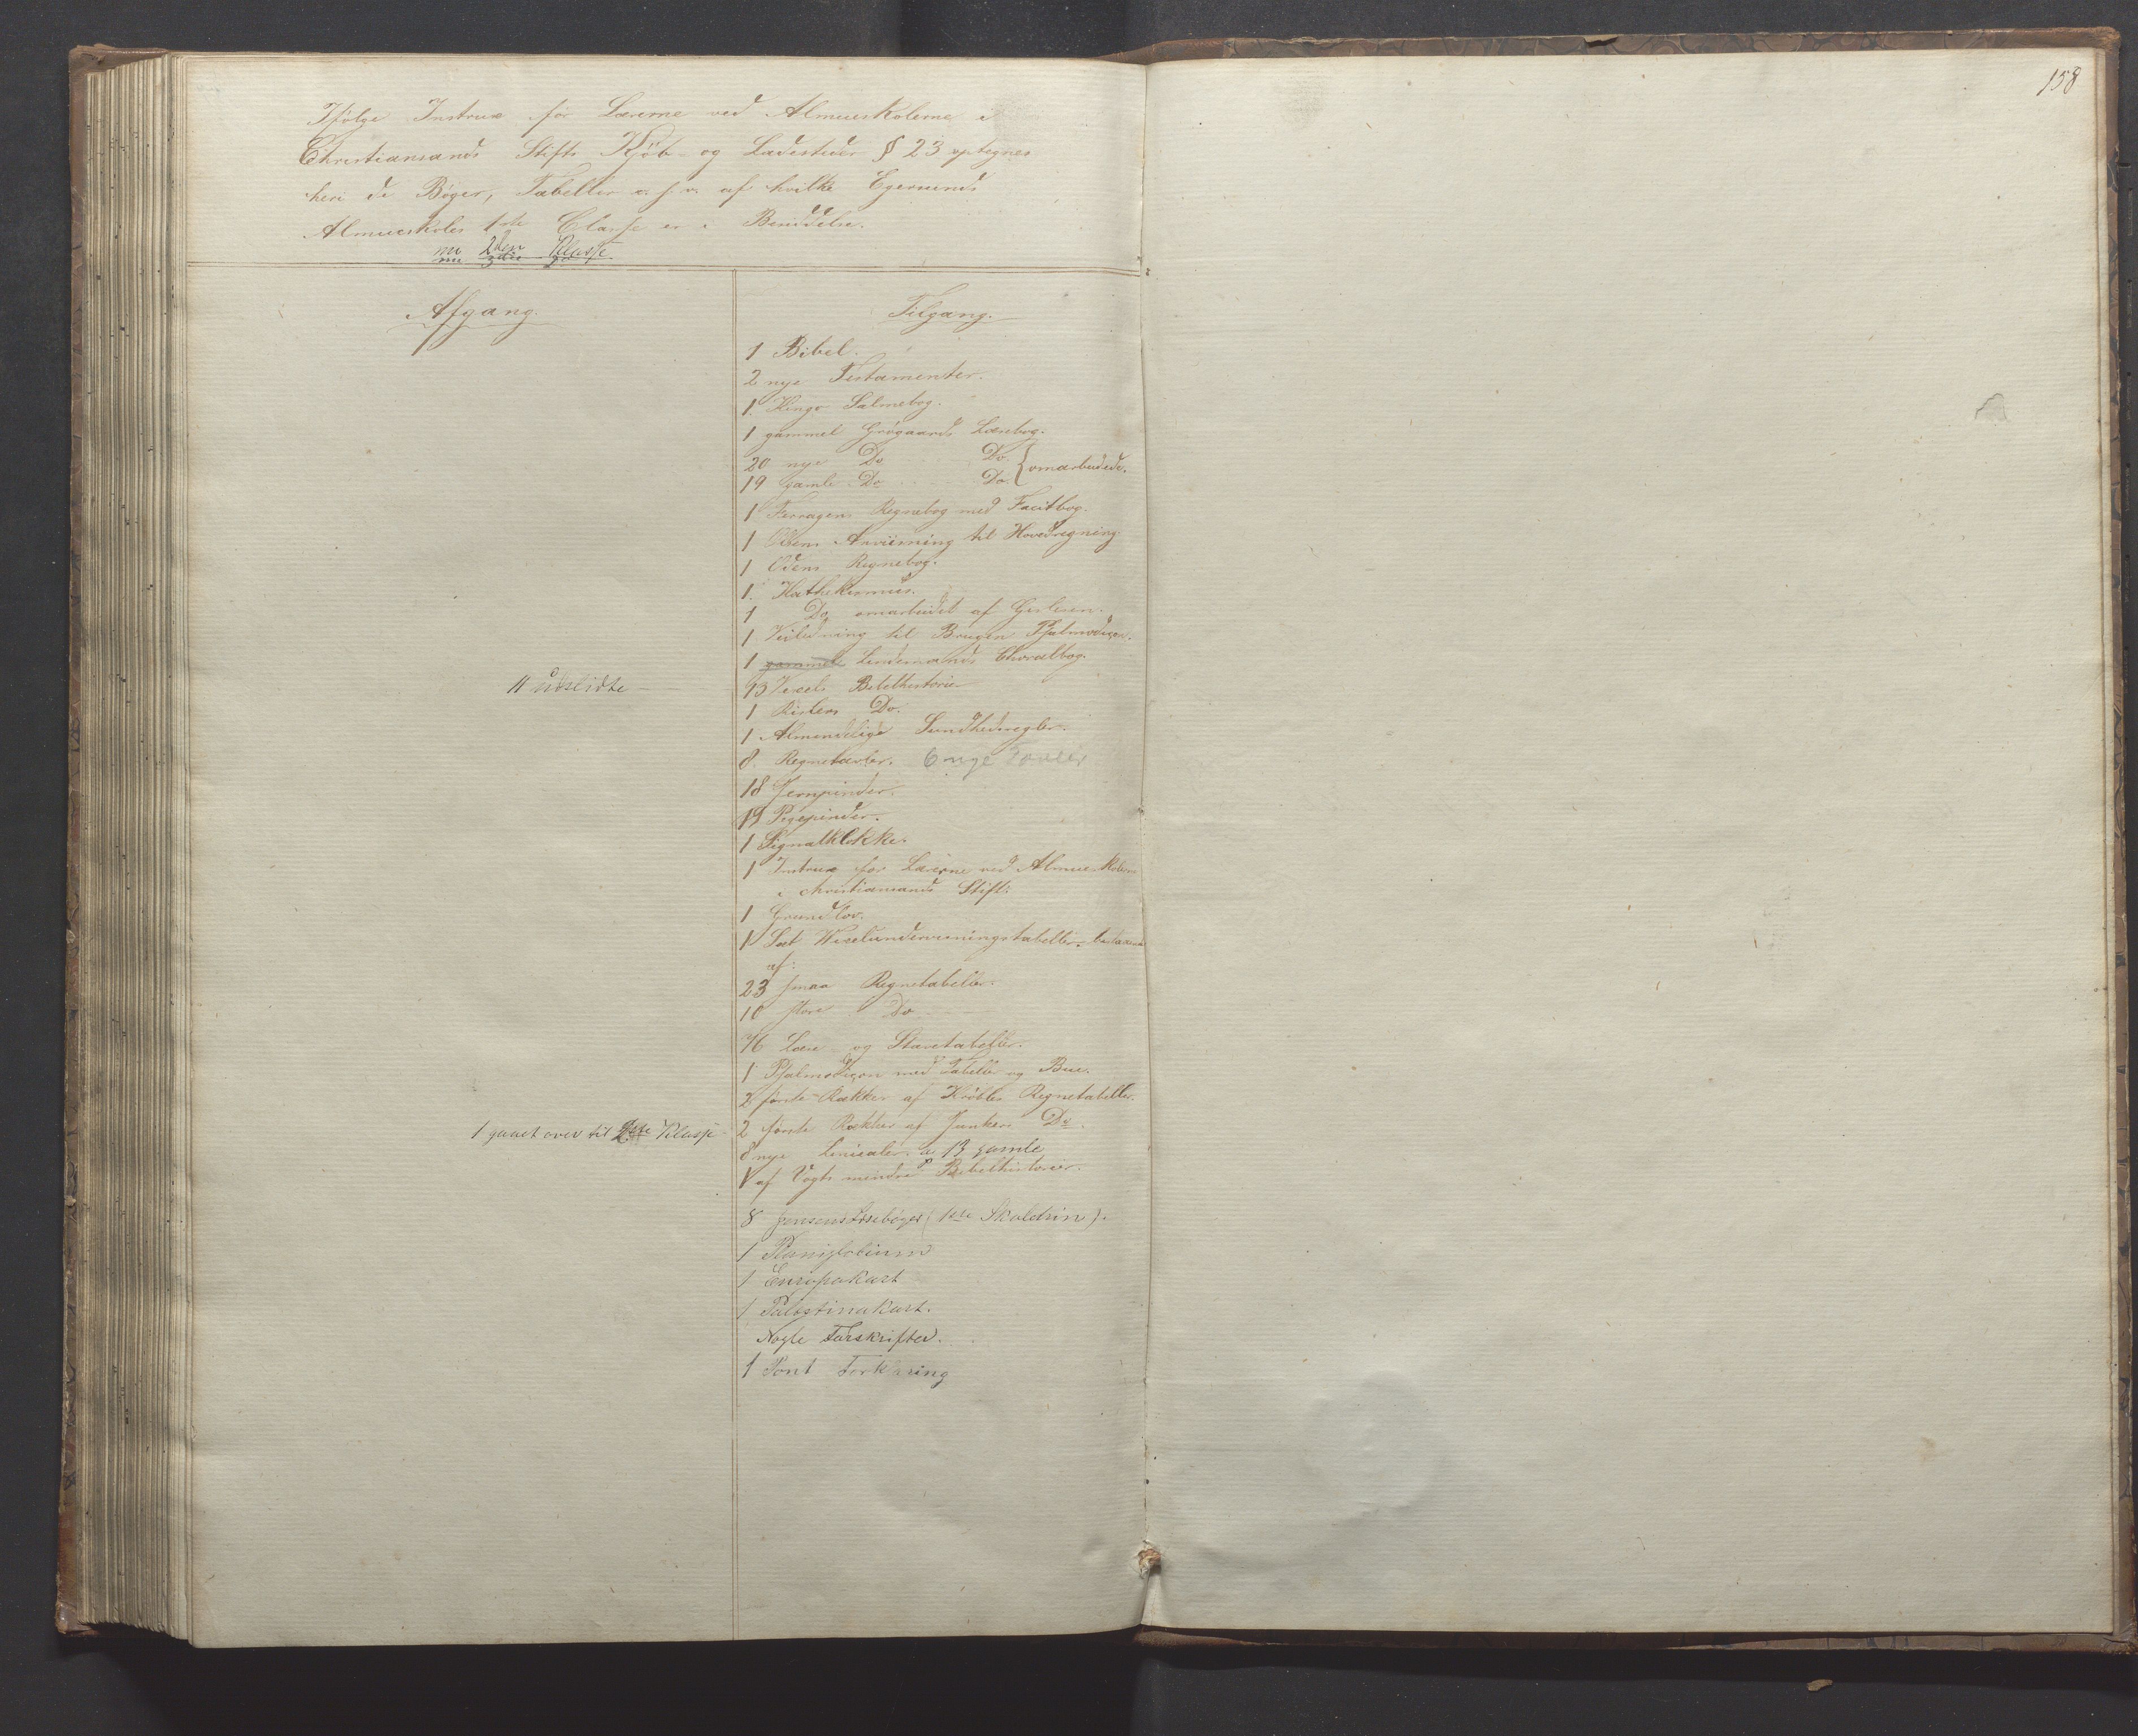 158
Ifølge Instrux for Lærerne ved Almueskolerne i
Christiansands Stifts Kjöb- og Ladesteder § 23 optegnes
heri de Bøger, Tabeller o. s. v. af hvilke Egersunds
Almueskoles 1ste Classe er i Besiddelse.
nu 2den Klasse
Afgang.
Tilgang.
1 Bibel.
2 nye Testamenter.
1. Kingo Salmebog.
1 gammel Grøgaards Læsebog.
20 nye Do Do
19 gamle Do Do. { omarbeidede.
1 Ferragens Regnebog med Facitbog.
1 Olsens Anviisning til Hovedregning.
1 Regnebog.
1. Kathekismus.
1 Do omarbeidet af
1 Veiledning til Brugen Psalmodicon.
1 gammel Lindemands Choralbog.
11 udslidte 
13 Vexels Bibelhistorie
1 Do.
1 Almindelige Sundhedsregler.
8. Regnetavler. 6 nye Tavler
18 Jernpinder.
19 Pegepinder.
1 Signalklokke.
1 Instrux for Lærerne ved Almueskolerne
i Christiansands Stift:
1 Grundlov.
1 Sæt Vexelundervisningstabeller bestaaende
af:
23 smaa Regnetabeller.
10 store Do
76 Læse- og Stavetabeller.
1 Psalmodicon med Tabeller og Bue.
2 første Rækker af Kröblis Regnetabeller.
1 gaaet over til Klasse
2 første Rækker af Junkers Do.
8 nye Linealer. 13 gamle
1 af Vogts mindre Bibelhistorier.
8 Jensens Læsebøger (1ste Skoletrin).
1 Planiglobium
1 Europakart
1 Palæstinakart.
Nogle Forskrifter.
1 Pont Forklaring